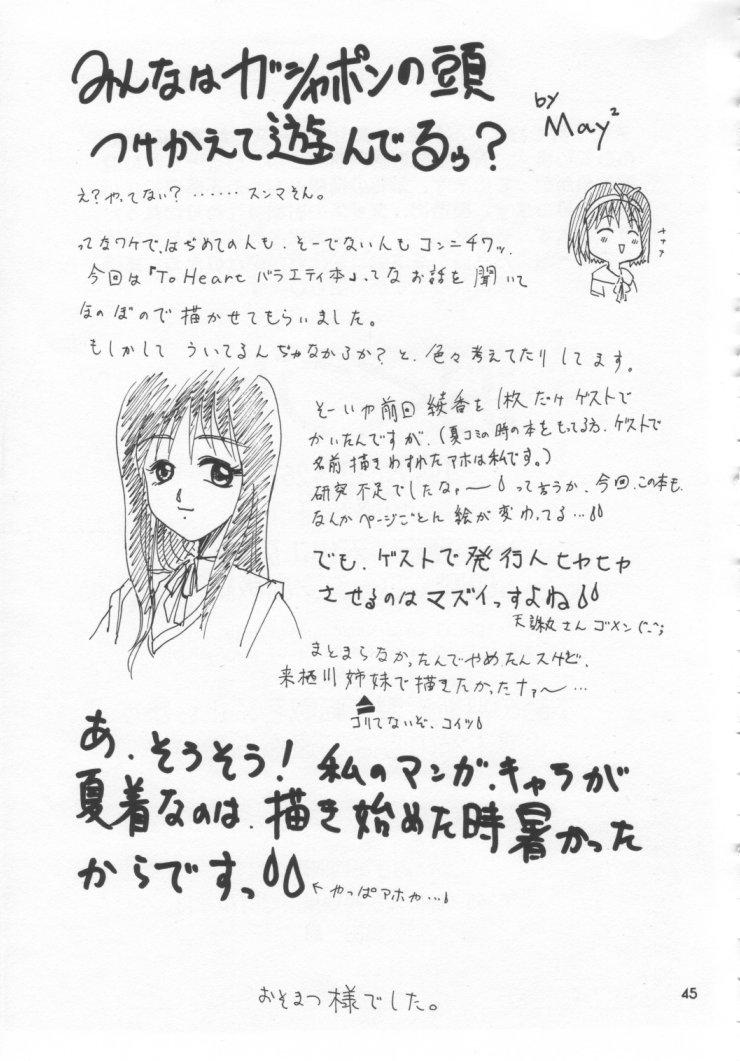 みんなはガシャポンの頭
つけかえて遊んでるぅ?
by
May²
え?やってない?……スンマそん。
ってなワケで、はぢめての人も、そーでない人もコンニチワッ。
今回は『To Heart バラエティ本』ってなお話を聞いて
ほのぼので描かせてもらいました。
もしかして ういてるんぢゃなかろか?と、色々考えてたりしてます。
そーいや前回 綾香を1枚だけゲストで
かいたんですが、(夏コミの時の本をもってる方、ゲストで
名前描きわすれたアホは私です。)
研究不足でしたなァ〜 って言うか、今回、この本も、
なんかページごとに絵が変わってる…
でも、ゲストで発行人ヒヤヒヤ
させるのはマズイっすよね
天誅丸さんゴメン(^_^;
まとまらなかったんでやめたんスけど、
来栖川姉妹で描きたかったナァ〜…
コリてないぞ、コイツ
あ、そうそう! 私のマンガ、キャラが
夏着なのは、描き始めた時暑かった
からですっ
←やっぱアホや…
おそまつ様でした。
45